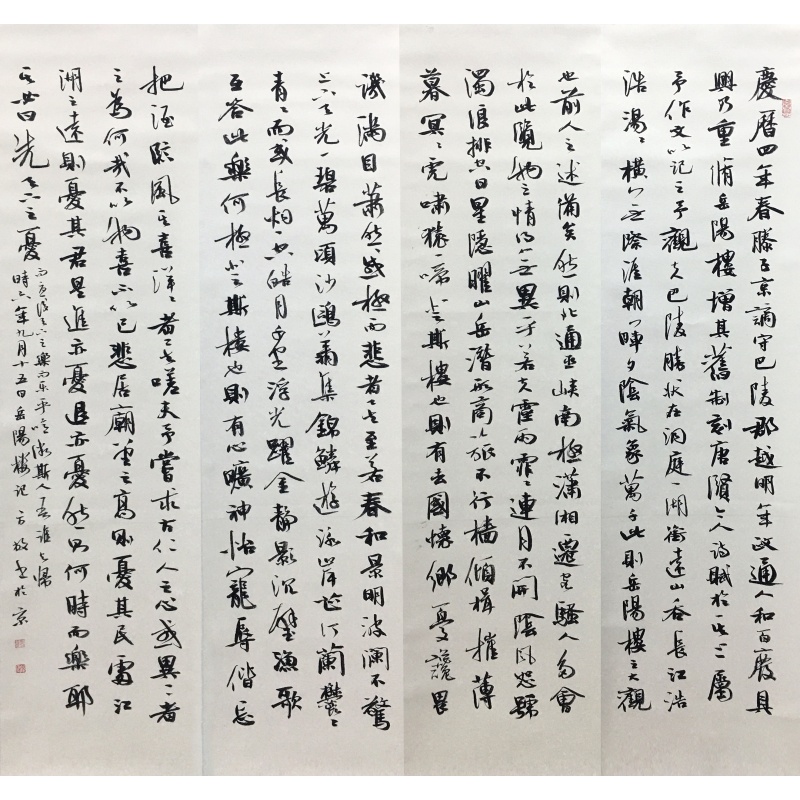 慶曆四年春滕子京謫守巴陵郡越明年政通人和百廢具
興乃重脩岳陽樓增其舊制刻唐賢今人詩賦於其上屬
予作文以記之予觀夫巴陵勝狀在洞庭一湖銜遠山吞長江浩
浩湯〻橫無際涯朝暉夕陰氣象萬千此則岳陽樓之大觀
也前人之述備矣然則北通巫峽南極瀟湘遷客騷人多會
於此覽物之情得無異乎若夫霪雨霏〻連月不開陰風怒號
濁浪排空日星隱曜山岳潛形商旅不行檣傾楫摧薄
暮冥〻虎嘯猿啼登斯樓也則有去國懷鄉憂讒畏
譏滿目蕭然感極而悲者矣至若春和景明波瀾不驚
上下天光一碧萬頃沙鷗翔集錦鱗遊泳岸芷汀蘭鬱〻
青〻而或長烟一空皓月千里浮光躍金靜影沉璧漁歌
互答此樂何極登斯樓也則有心曠神怡寵辱偕忘
把酒臨風其喜洋〻者矣嗟夫予嘗求古仁人之心或異二者
之為何哉不以物喜不以己悲居廟堂之高則憂其民處江
湖之遠則憂其君是進亦憂退亦憂然則何時而樂耶
其必曰先天下之憂
而憂後天下之樂而樂乎噫微斯人吾誰與歸
時六年九月十五日岳陽樓記 方放書於京